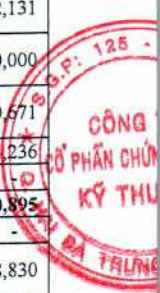 ,131
,000
,671
,236
,895
-
,830
S.G.P: 125 -
CÔNG
CỔ PHẦN CHỨN
KỸ THU
BÀ TRƯNG